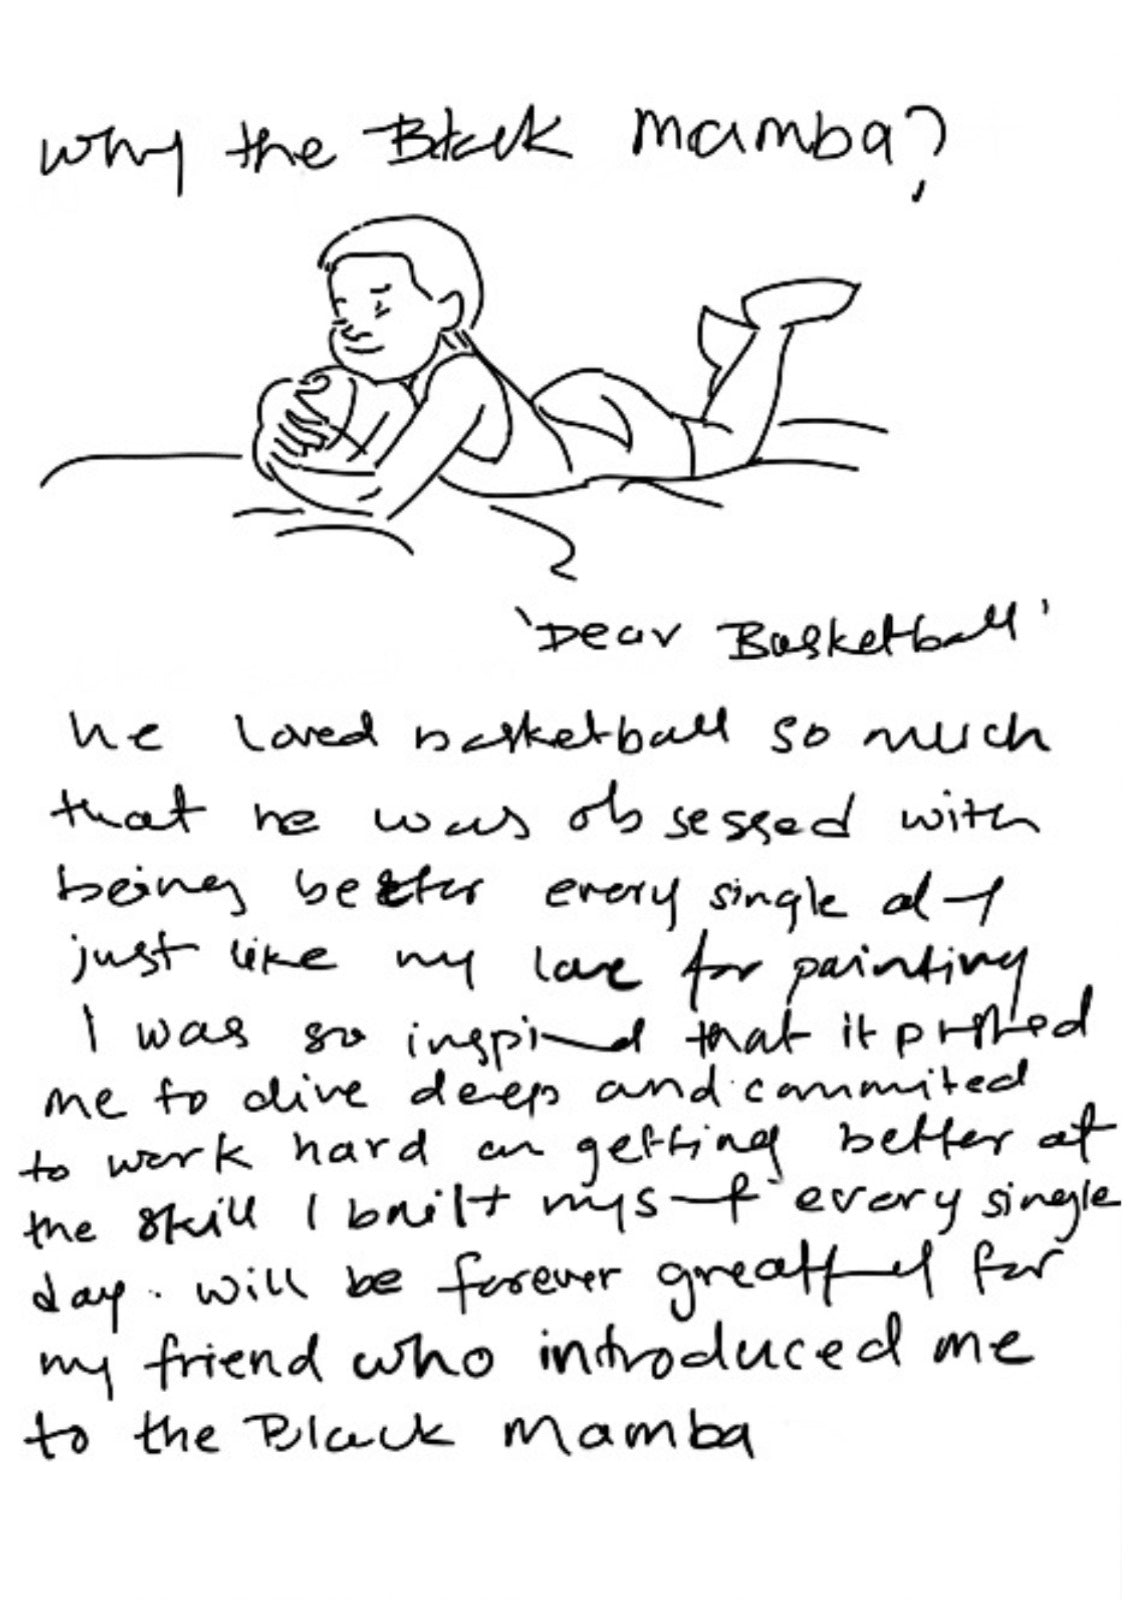 why the Black Mamba?
'Dear Basketball'
he loved basketball so much
that he was obsessed with
being better every single day
just like my love for painting
I was so inspired that it pushed
me to dive deep and commited
to work hard on getting better at
the skill I built myself every single
day. will be forever greatful for
my friend who introduced me
to the Black Mamba